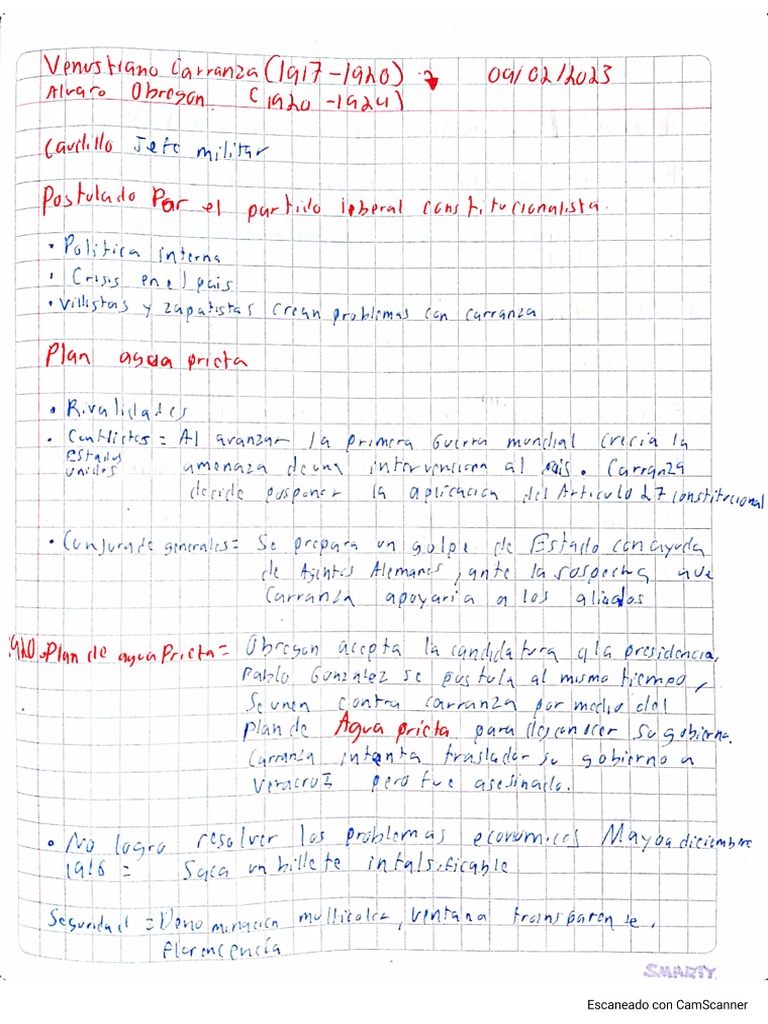 Venustiano Carranza (1917-1920) 09/02/2023
Alvaro Obregon. (1920-1924)
Caudillo Jefe militar
Postulado Por el partido liberal constitucionalista.
• Politica interna
• Crisis en el pais
• Villistas y zapatistas crean problemas con carranza
Plan agua pricta
• Rivalidades
• Conflictos = Al avanzar la primera Guerra mundial crecia la
Estados unidos amenaza de una intervencion al pais. Carranza
decide posponer la aplicacion del Articulo 27 constitucional
• Conjura de generales = Se prepara un golpe de Estado con ayuda
de Agentes Alemanes, ante la sospecha que
Carranza apoyaria a los aliados
1920. Plan de agua Pricta = Obregon acepta la candidatura a la presidencia,
Pablo Gonzalez se postula al mismo tiempo,
Se unen contra carranza por medio del
plan de Agua pricta para desconocer su gobierno.
Carranza intenta trasladar su gobierno a
Veracruz pero fue asesinado.
• No logro resolver los problemas economicos Mayo a diciembre
1916 = Saca un billete infalsificable
Seguridad = Denominacion multicolor, ventana transparente,
florencencia
SMARTY
Escaneado con CamScanner